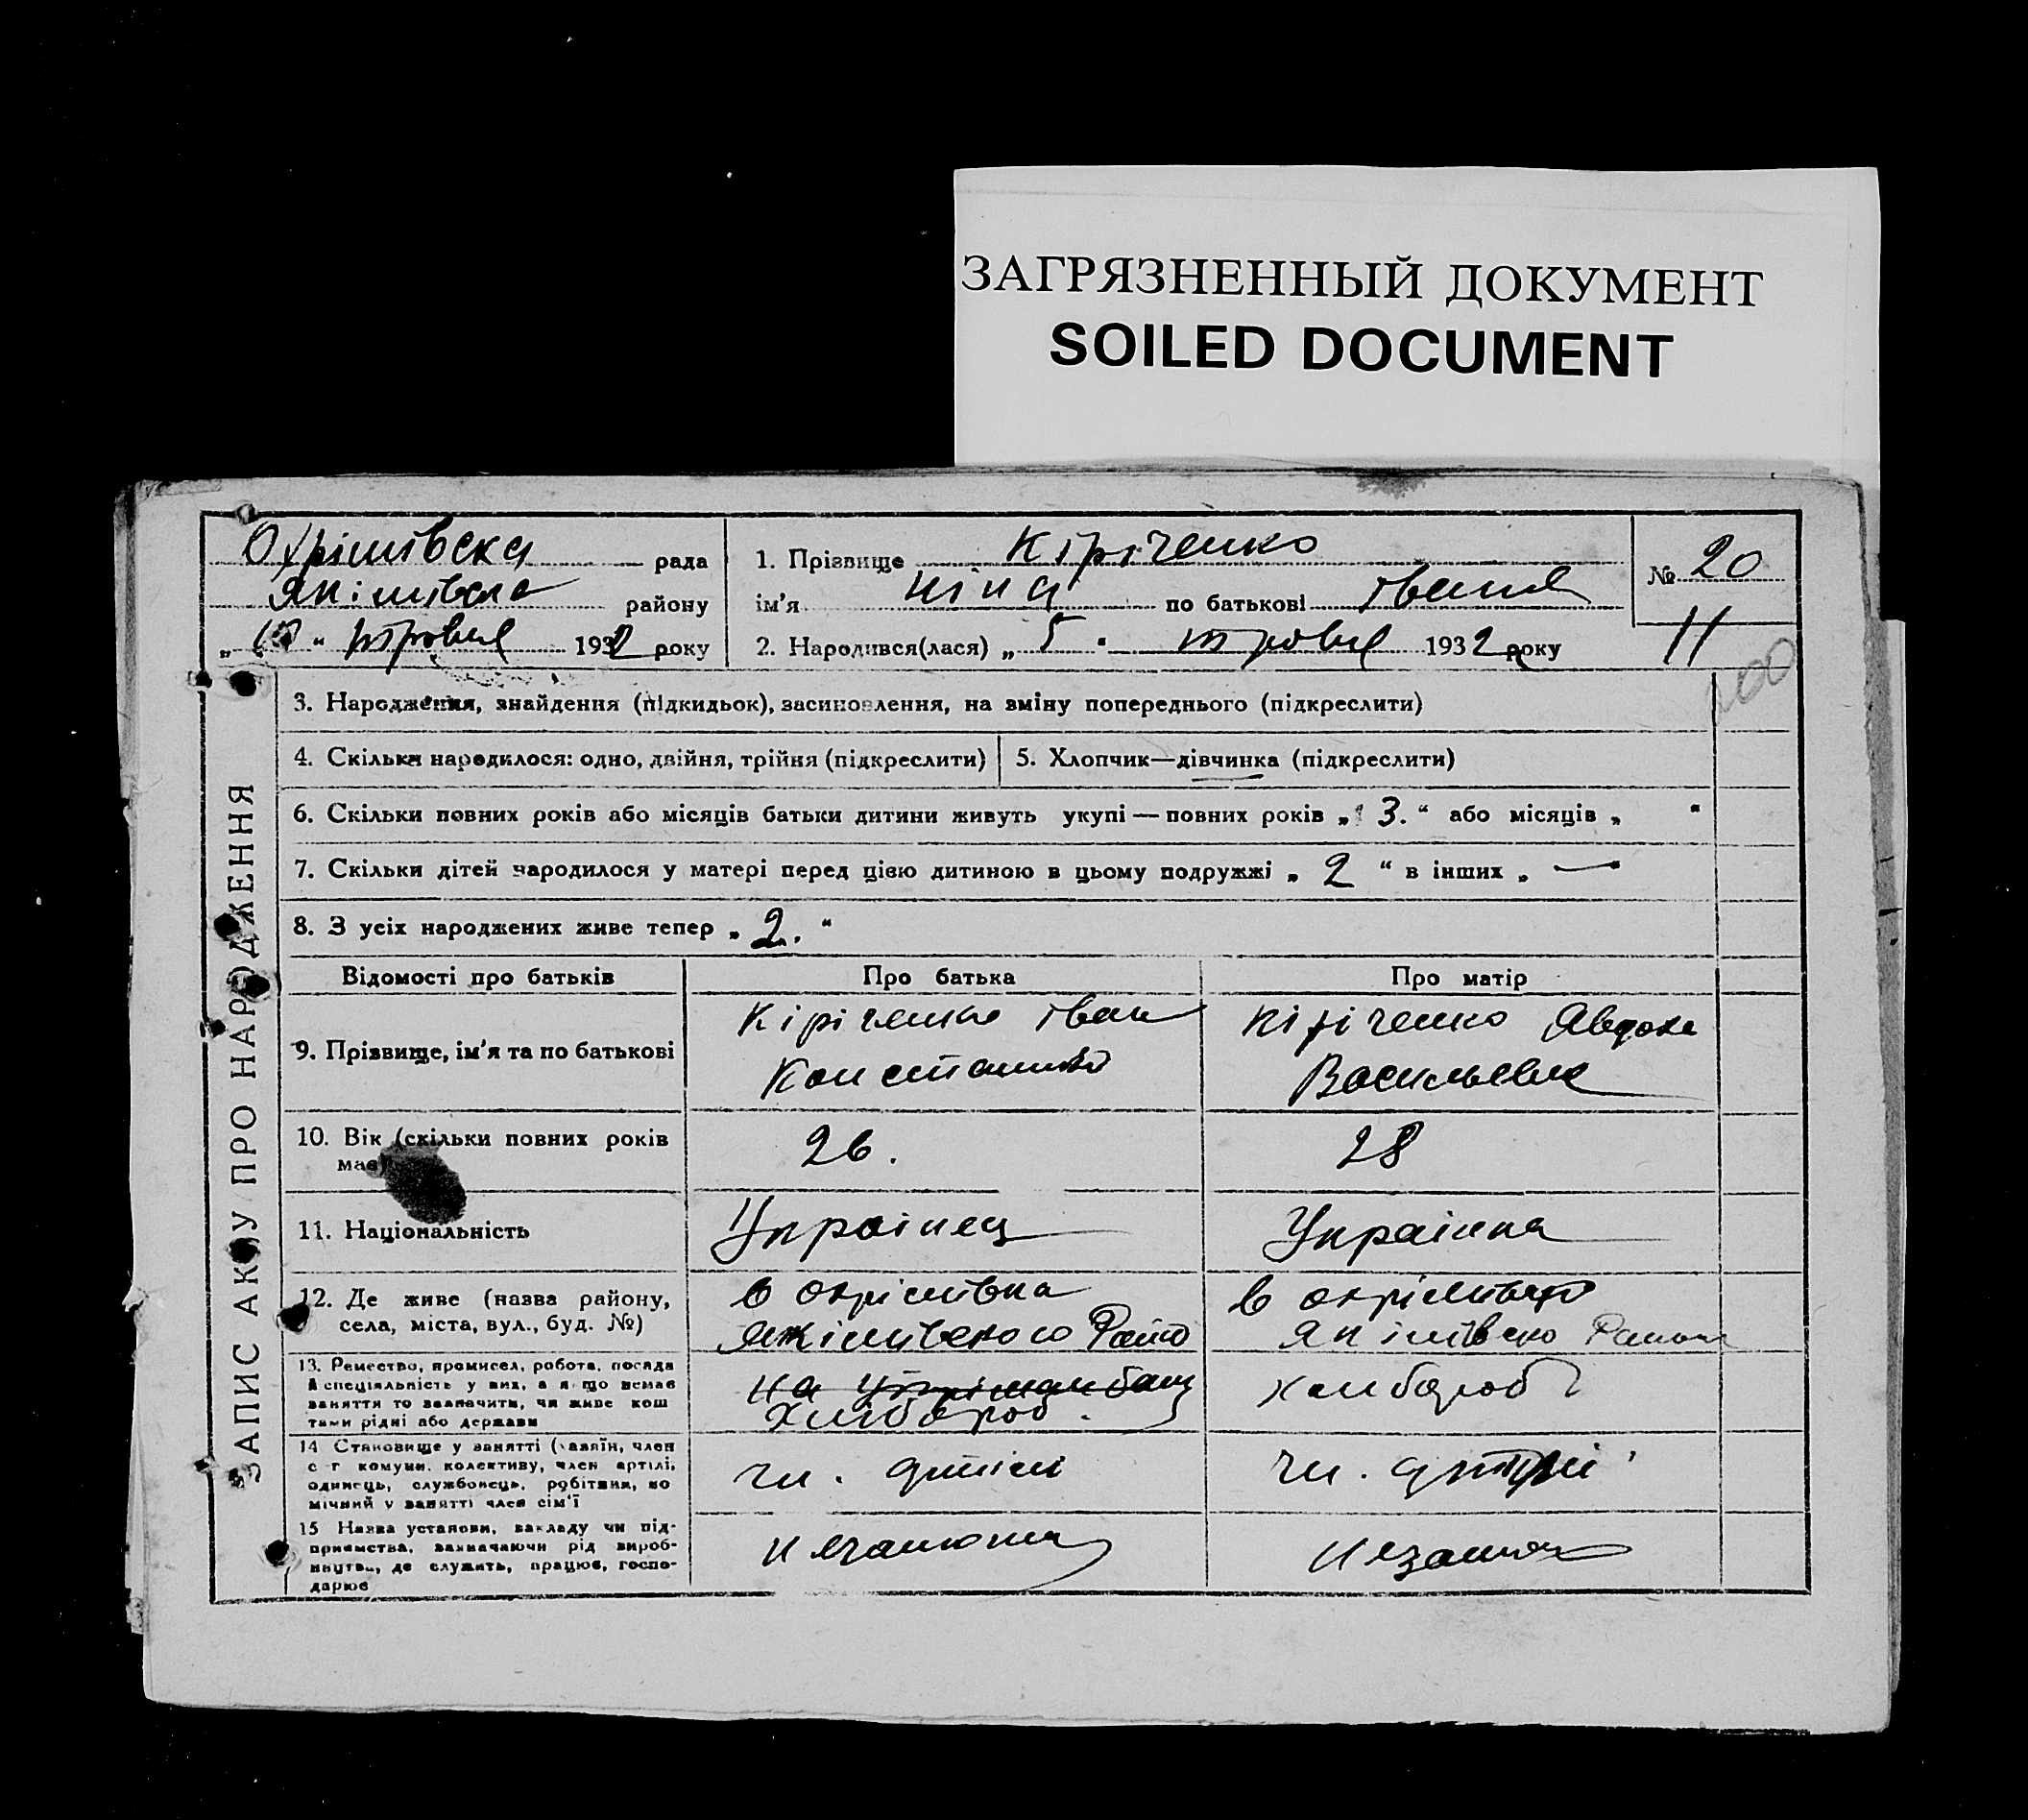 ЗАГРЯЗНЕННЫЙ ДОКУМЕНТ
SOILED DOCUMENT
Охрімівська рада
Якімівська району
" " травня 1932 року
1. Прізвище Кіріченко
ім'я Ніна по батькові Івання
2. Народився(лася) „ 5 " травня 1932 року
№ 20
11
200
ЗАПИС АКТУ ПРО НАРОДЖЕННЯ
3. Народження, знайдення (підкидьок), засиновлення, на зміну попереднього (підкреслити)
4. Скільки народилося: одно, двійня, трійня (підкреслити)
5. Хлопчик—дівчинка (підкреслити)
6. Скільки повних років або місяців батьки дитини живуть укупі — повних років „ 3. " або місяців „ "
7. Скільки дітей народилося у матері перед цією дитиною в цьому подружжі „ 2 " в інших „ — "
8. З усіх народжених живе тепер „ 2. "
Відомості про батьків Про батька Про матір
9. Прізвище, ім'я та по батькові
Кіріченко Іван
Кіріченко Явдоха
Васильевна
10. Вік (скільки повних років
має)
26.
28
11. Національність
Украінец
Украінка
12. Де живе (назва району,
села, міста, вул., буд. №)
в охрімівка
Якімівского Райо
в охрімівці
Якімівско Район
13. Ремество, промисел, робота, посада
й спеціяльність у них, а якщо немає
заняття то зазначити, чи живе кош
тами рідні або держави
на
хлібороб.
хліббороб
14 Становище у занятті (хазяїн, член
с г комуни, колективу, член артілі,
одинець, службовець, робітник, по
мічний у занятті член сім'ї
чл. артілі
чл. артілі
15 Назва установи, закладу чи під-
приємства, зазначаючи рід вироб-
ництва, де служить, працює, госпо-
дарює